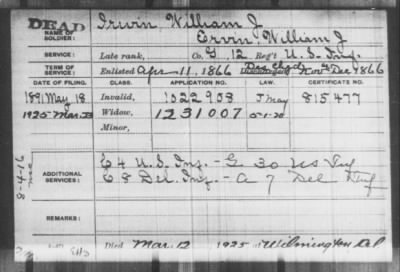 DEAD
NAME OF SOLDIER: Irwin William J
Ervin, William J
SERVICE: Late rank, Co. G, 12 Reg't U.S. Inf.
TERM OF SERVICE: Enlisted Apr 11, 1866 Dischgd Nov Dec 1866
DATE OF FILING. CLASS. APPLICATION NO. LAW. CERTIFICATE NO.
1891 May 18 Invalid, 1022908 J May 815477
1925 Mar. Widow, 1231007 5-1-20
Minor,
ADDITIONAL SERVICES: E 4 U.S. Inf. - G 30 US Inf
E 8 Del. Inf. - A 7 Del Inf
8-4-16
REMARKS:
Died Mar. 12 1925 at Wilmington Del